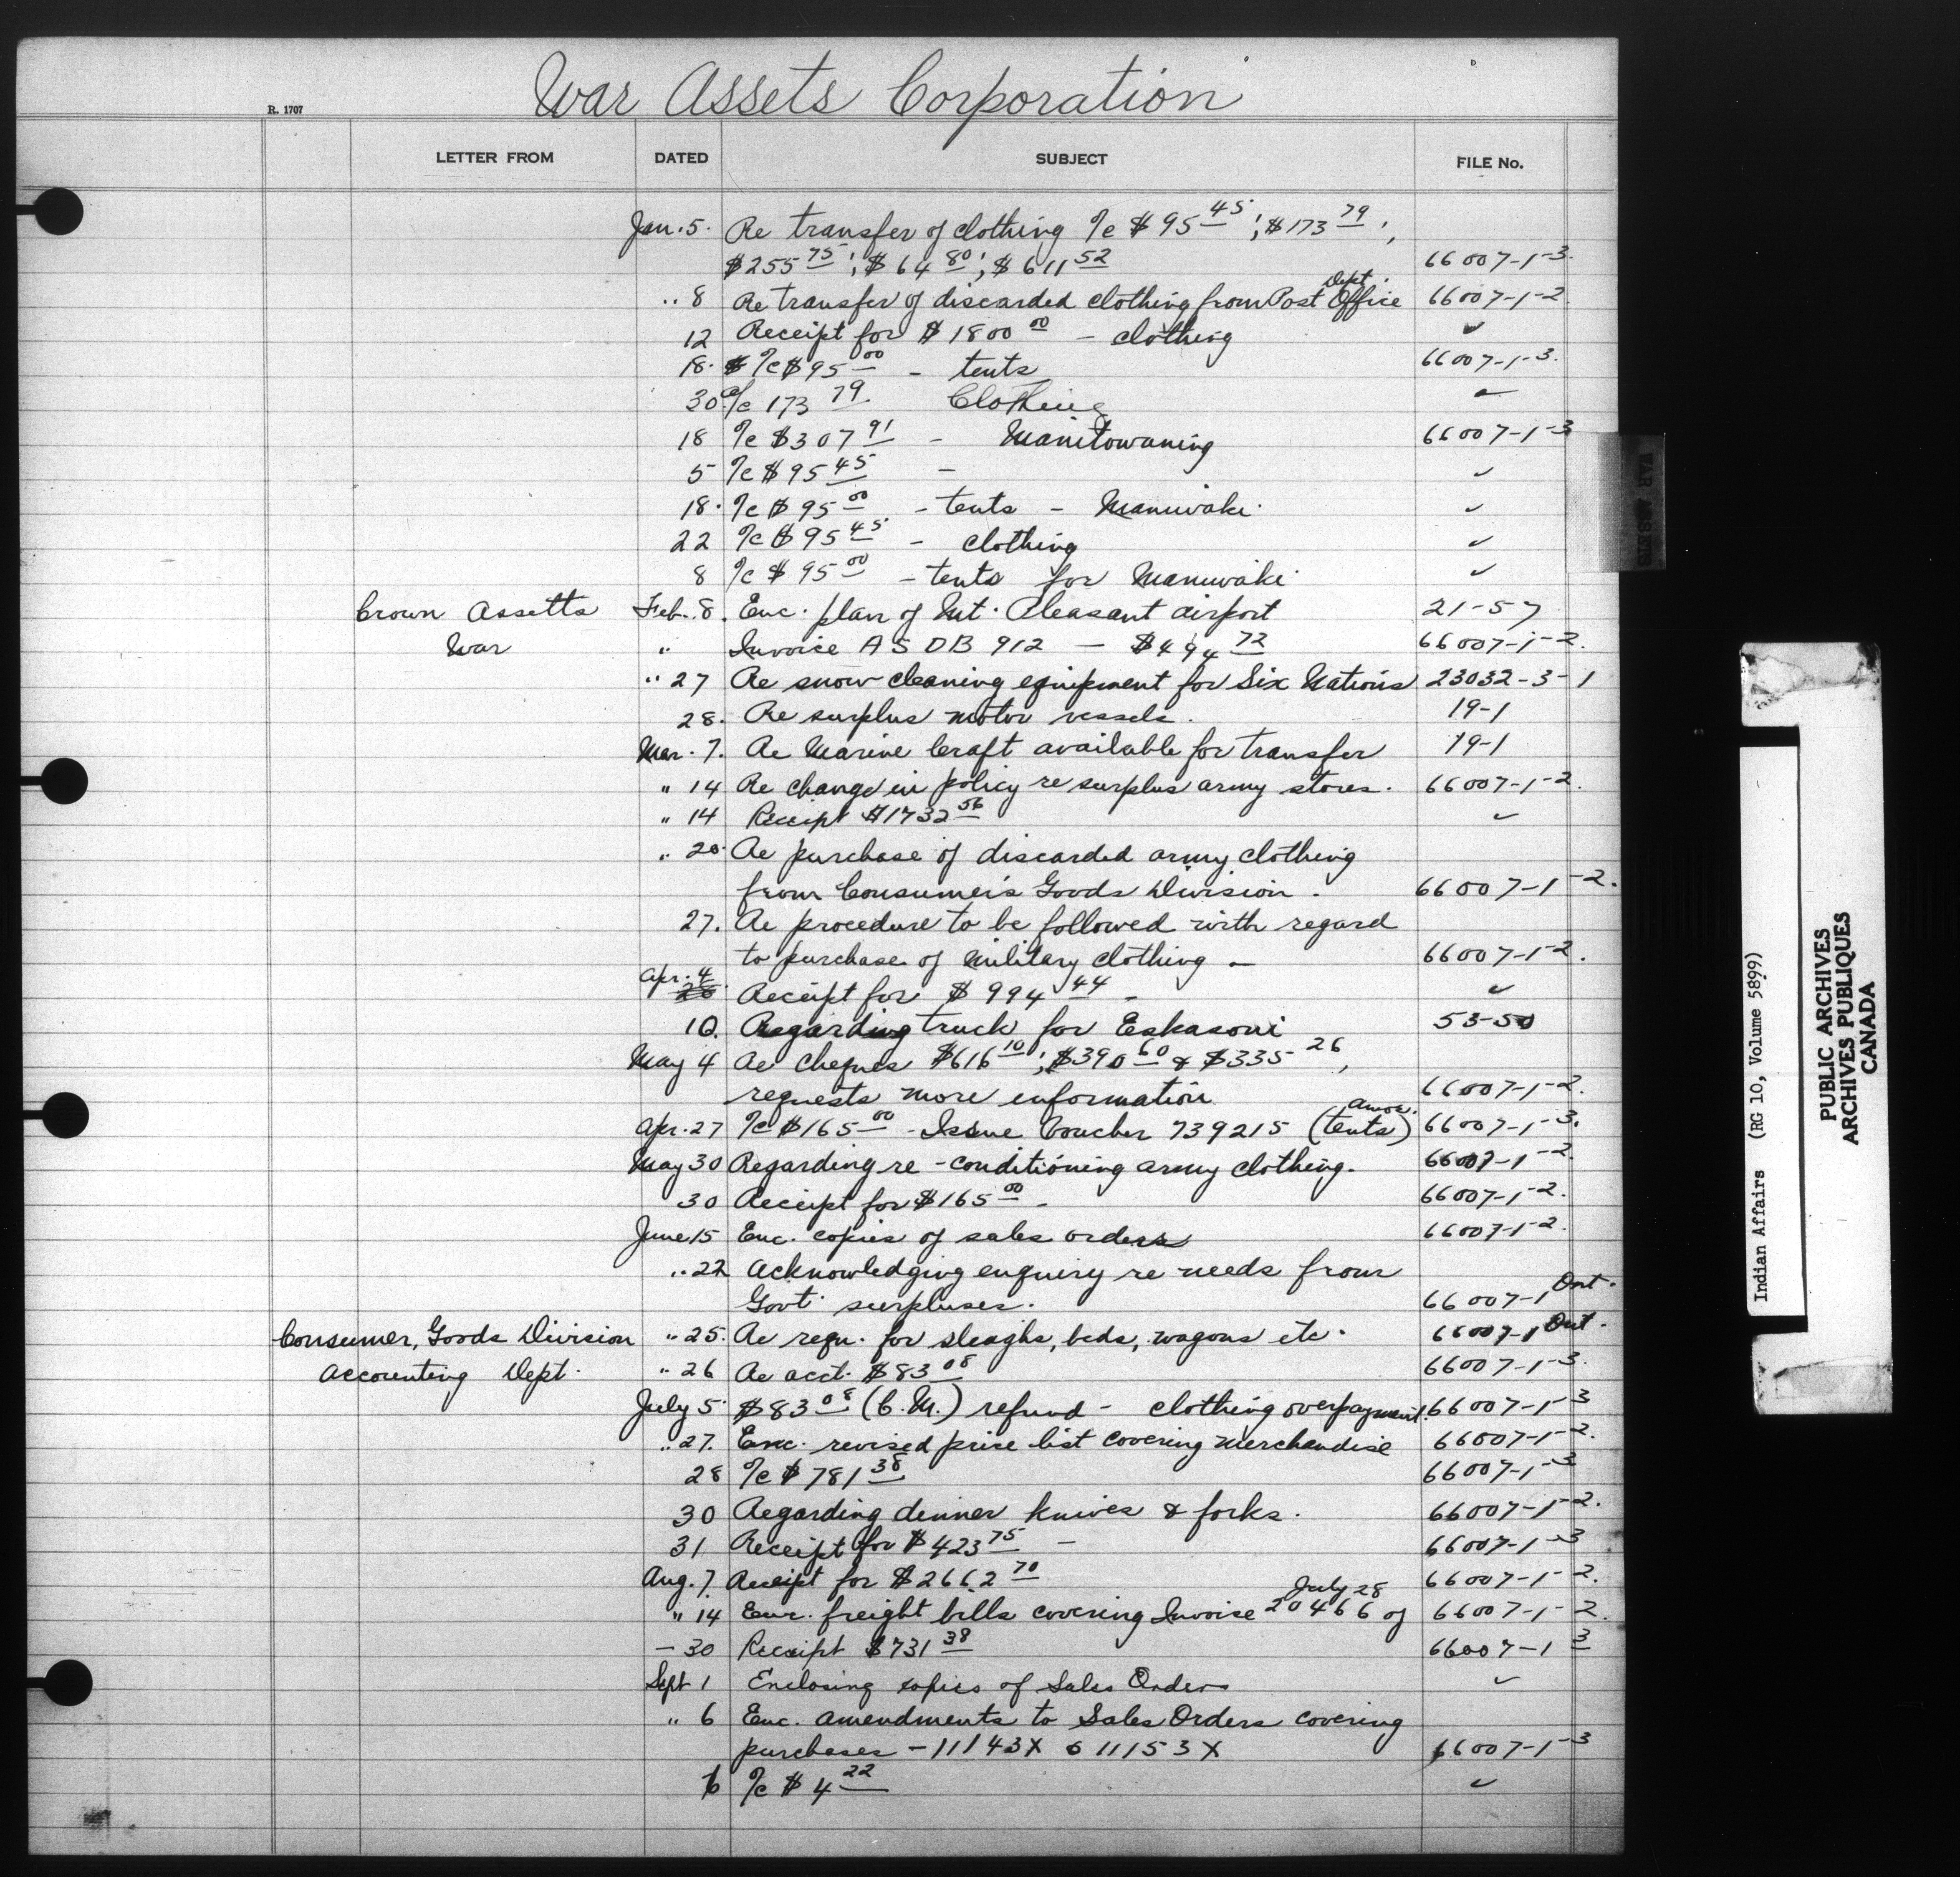 War Assets Corporation
R. 1707
LETTER FROM DATED SUBJECT FILE No.
Jan. 5. Re transfer of clothing %c $95 45; $173 79;
$255 75; $64 80; $611 52 66007-1-3.
" 8 Re transfer of discarded clothing from Post Office Dept. 66007-1-2.
12 Receipt for $1800 00 - clothing ✓
18. %c $95 00 - tents 66007-1-3.
30 a/c 173 79 Clothing ✓
18 %c $307 91 - Manitowaning 66007-1-3
5 %c $95 45 - ✓
18. %c $95 00 - tents - Maniwaki. ✓
22 %c $95 45 - clothing ✓
8 %c $95 00 - tents for Maniwaki ✓
Crown Assetts Feb. 8. Enc. plan of Mt. Pleasant airport 21-57
War " Invoice A S D B 912 - $494 72 66007-1-2.
" 27 Re snow cleaning equipment for Six Nations 23032-3-1
28. Re surplus motor vessels. 19-1
Mar. 7. Re Marine Craft available for transfer 19-1
" 14 Re change in policy re surplus army stores. 66007-1-2.
" 14 Receipt $1732 56 ✓
" 20 Re purchase of discarded army clothing
from Consumer's Goods Division. 66007-1-2.
27. Re procedure to be followed with regard
to purchase of Military clothing - 66007-1-2.
Apr. 4 Receipt for $994 44 - ✓
10. Regarding truck for Eskasoni 53-50
May 4 Re cheques $616 10; $390 60 & $335 26,
requests more information 66007-1-2.
Apr. 27 %c $165 00 - Issue Voucher 739215 (tents) 66007-1-3.
May 30 Regarding re-conditioning army clothing. 66007-1-2.
30 Receipt for $165 00 - 66007-1-2.
June 15 Enc. copies of sales orders 66007-1-2.
" 22 Acknowledging enquiry re needs from
Govt. surpluses. 66007-1 Ont.
Consumer, Goods Division " 25. Re requ. for sleaghs, beds, wagons etc. 66007-1 Ont.
Accounting Dept. " 26 Re acct. $83 08 66007-1-3.
July 5 $83 08 (C.M.) refund - clothing overpayment. 66007-1-3
" 27. Enc. revised price list covering merchandise 66007-1-2.
28 %c $781 38 66007-1-3
30 Regarding dinner knives & forks. 66007-1-2.
31 Receipt for $423 75 - 66007-1-3
Aug. 7. Receipt for $2662 70 66007-1-2.
" 14 Enc. freight bills covering Invoice 20466 of July 28 66007-1-2.
- 30 Receipt $731 38 66007-1 3
Sept 1 Enclosing copies of Sales Orders ✓
" 6 Enc. amendments to Sales Orders covering
purchases - 11143X 6 11153X 66007-1-3
6 %c $4 22 ✓
WAR ASSETS
Indian Affairs (RG 10, Volume 5899)
PUBLIC ARCHIVES
ARCHIVES PUBLIQUES
CANADA